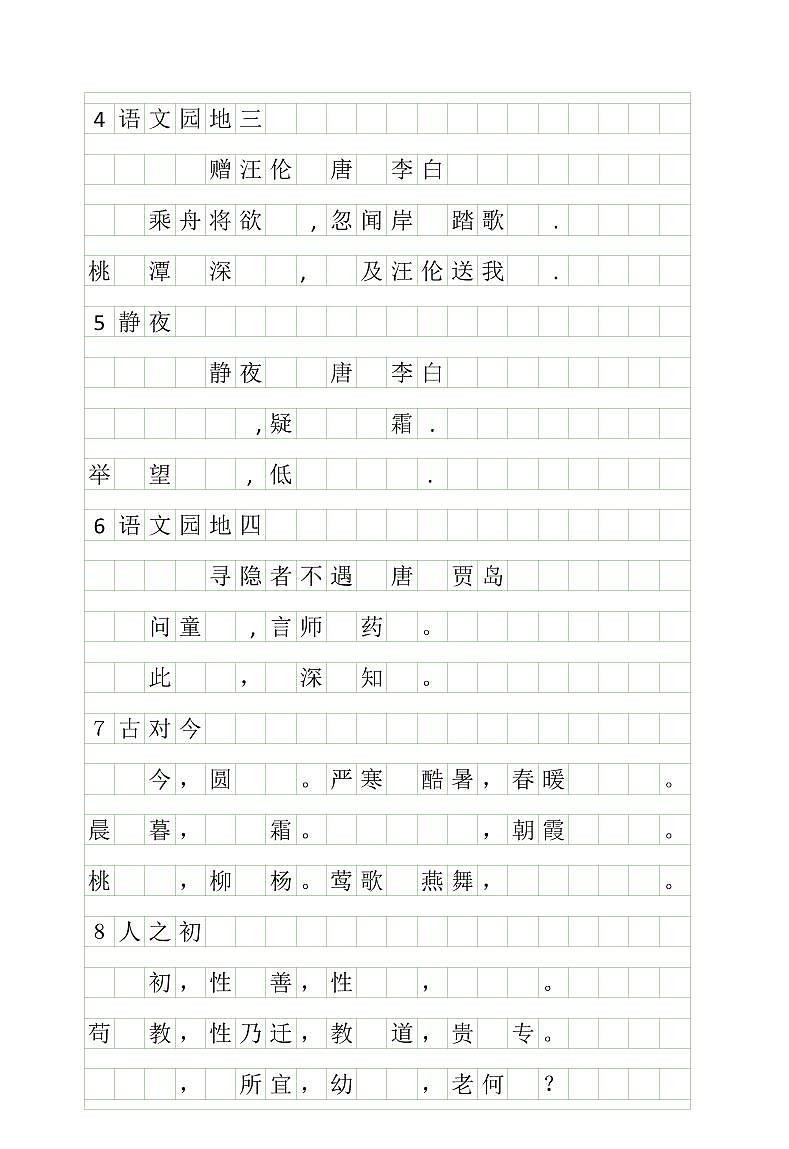 4 语文园地三
赠汪伦 唐 李白
乘舟将欲 ,忽闻岸 踏歌 .
桃 潭 深 , 及汪伦送我 .
5 静夜
静夜 唐 李白
,疑 霜 .
举 望 ,低 .
6 语文园地四
寻隐者不遇 唐 贾岛
问童 ,言师 药 。
此 ， 深 知 。
7 古对今
今，圆 。严寒 酷暑，春暖 。
晨 暮， 霜。 ，朝霞 。
桃 ，柳 杨。莺歌 燕舞， 。
8 人之初
初，性 善，性 ， 。
苟 教，性乃迁，教 道，贵 专。
， 所宜，幼 ，老何 ？